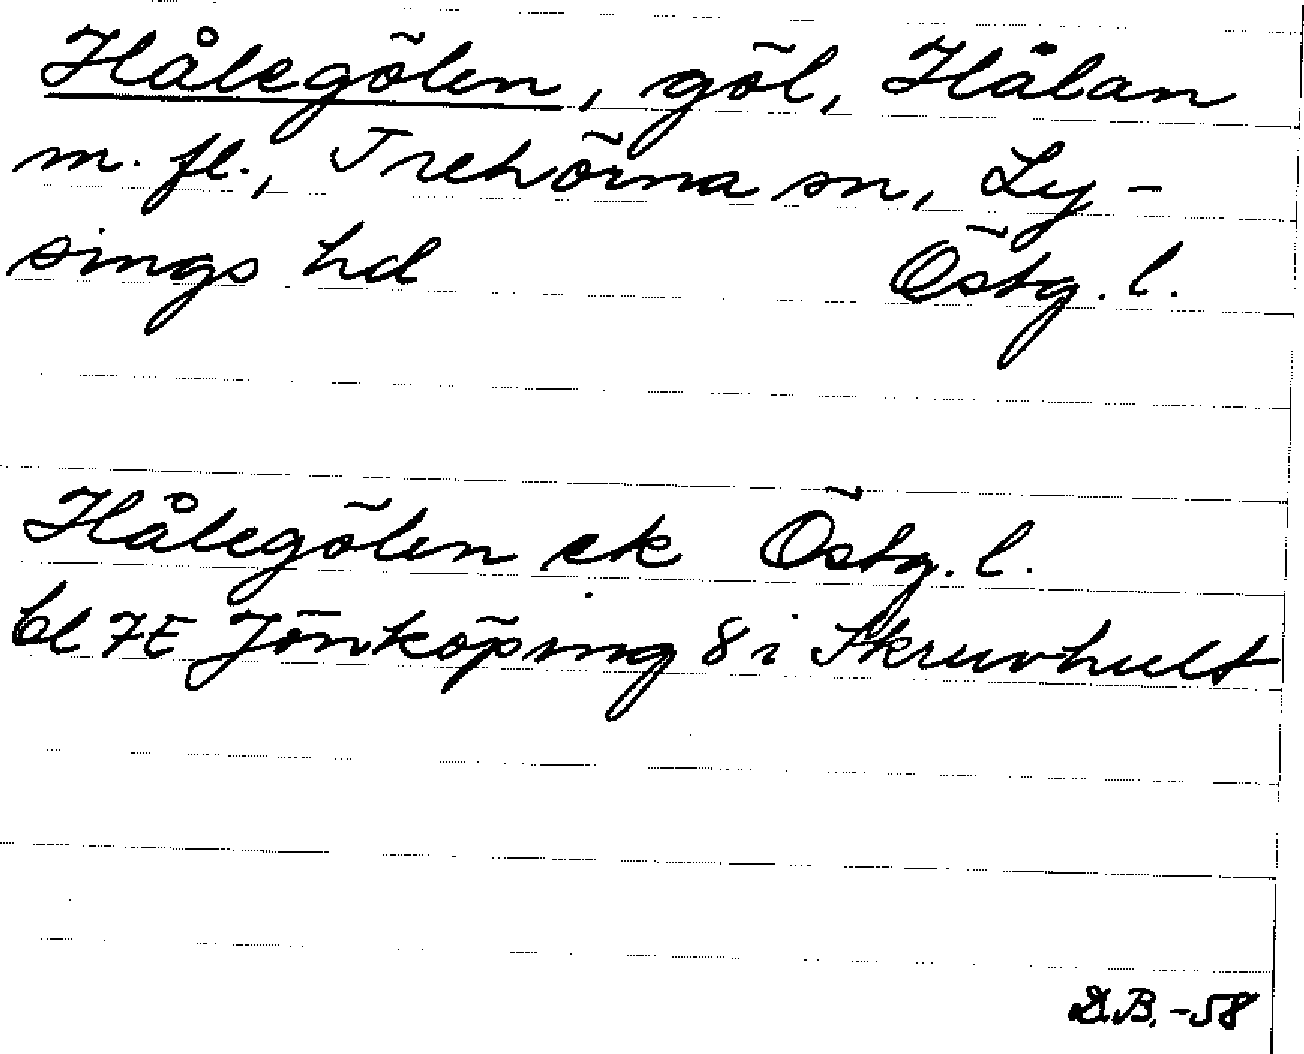 Hålegölen, göl, Hålan
m. fl., Trehörna sn, Ly-
sings hd Östg. l.
Hålegölen ek Östg. l.
bl 7E Jönköping 8 i Skruvhult
D.B. -58